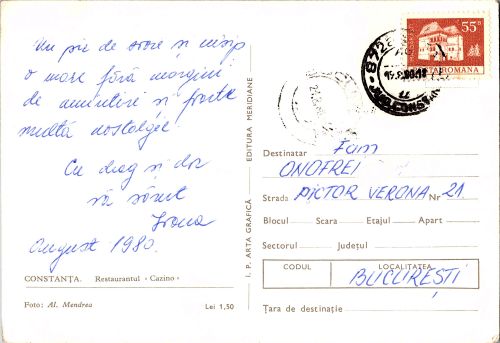 Un pic de soare și nisip
o mare fără margini
de amintiri și foarte
multă nostalgie.
Cu drag și dor
vă sărut
Ioana
August 1980.
CONSTANȚA. Restaurantul «Cazino»
Foto: Al. Mendrea
Lei 1,50
I. P. ARTA GRAFICĂ EDITURA MERIDIANE
55 B
POSTA ROMANA
Destinatar Fam
ONOFREI
Strada PICTOR VERONA Nr 21
Blocul Scara Etajul Apart
Sectorul Județul
CODUL LOCALITATEA
BUCUREȘTI
Țara de destinație